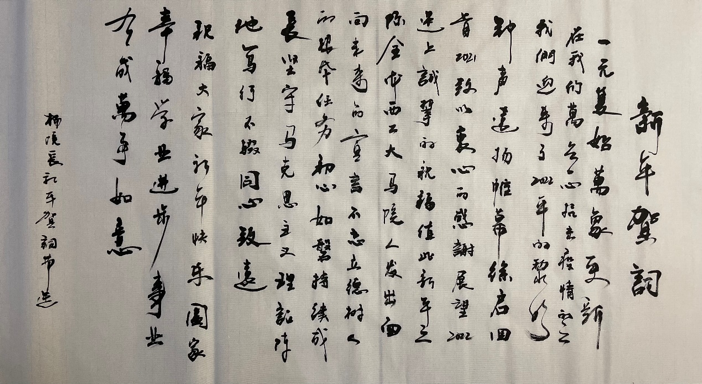 新年賀詞
一元复始萬象更新
在我 萬 心 疫情
我們迎来了2022年的
钟声 扬帷幕徐启回
首2021致以衷心的感謝展望2022
送上誠摯的祝福值此新年之
际全 西工大马院人发出面
向未来的宣言不忘立德树人
的根本任务初心如磐持续成
長坚守马克思主义理论阵
地笃行不辍同心致遠
祝福大家新年快乐阖家
幸福学业进步事业
有成萬事如意
杨院長新年賀詞节选